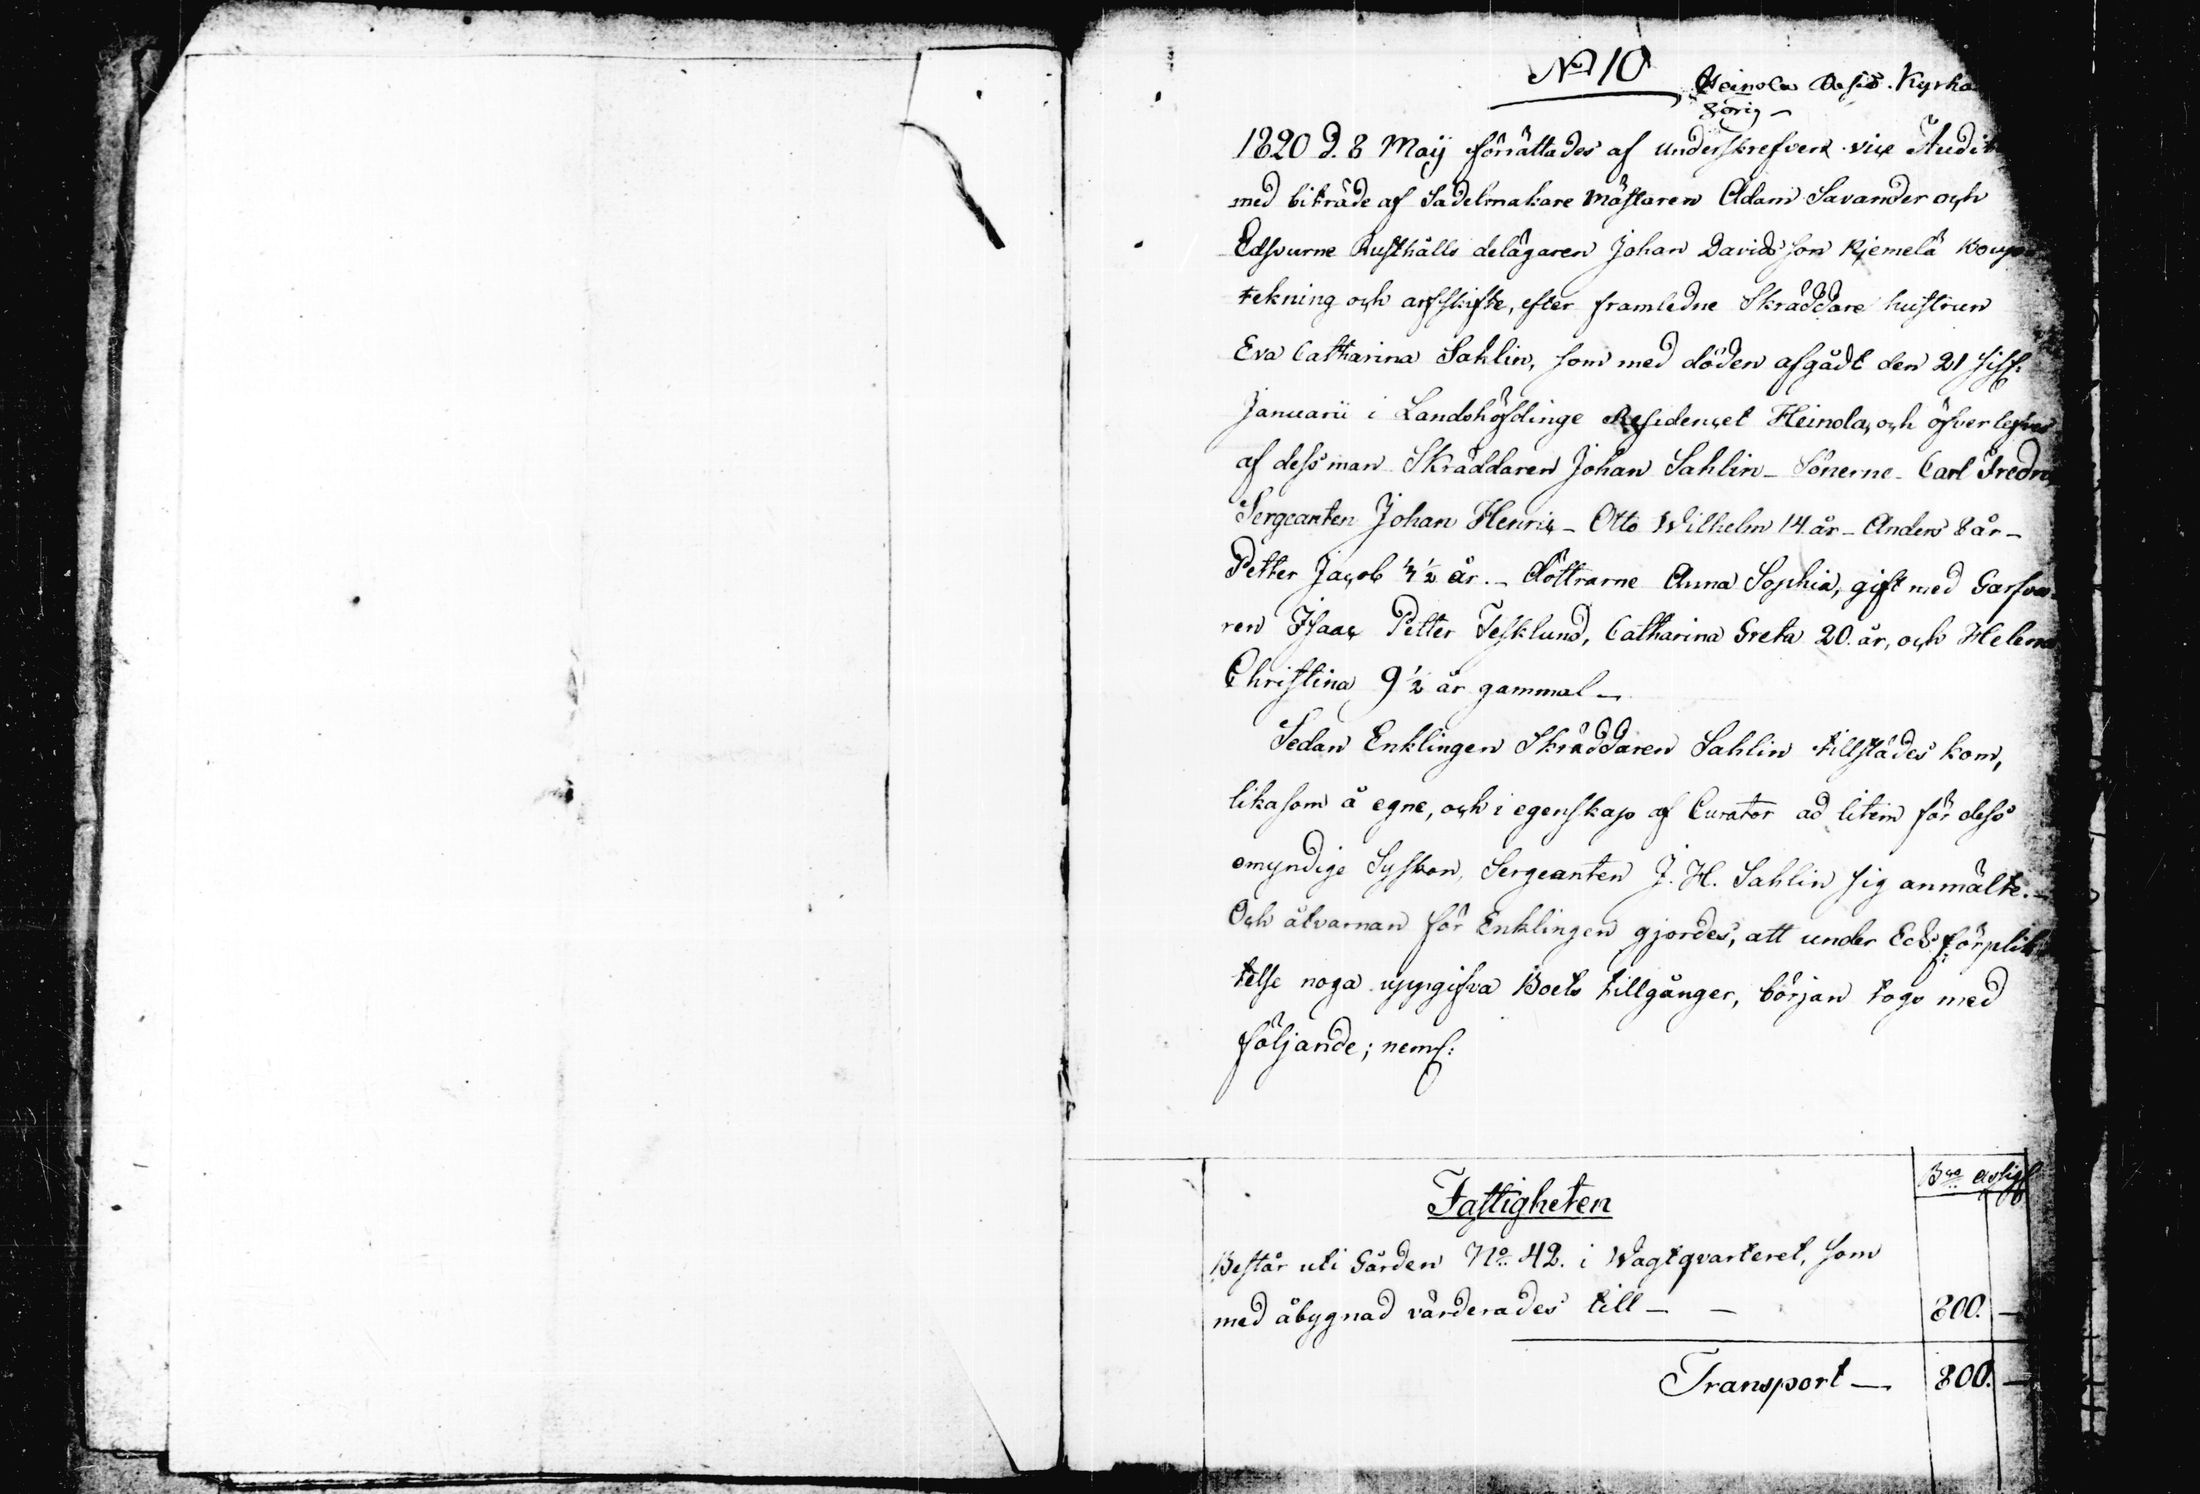 No 10
Heinola Resid. Kyrko
1820 d. 8 Maij förrättades af underskrefven vice Audit
med biträde af Sadelmakare Mästaren Adam Savander och
Edsvurne Rusthålls delägaren Johan Davidsson Kiemelä Boup
tekning och arfskifte, efter framledne Skräddare hustrun
Eva Catharina Sahlin, som med döden afgådt den 21 sisf:
Januarii i Landshöfdinge Residencet Heinola, och öfverlefves
af dess man Skräddaren Johan Sahlin - Sönerne - Carl Fredr
Sergeanten Johan Henric - Otto Wilhelm 14 år - Anders 8 år -
Petter Jacob 4 1/2 år. - döttrarne Anna Sophia, gift med Garfva
ren Isaac Petter Feshlund, Catharina Greta 20. år, och Helena
Christina 9 1/2 år gammal -
Sedan Enklingen Skräddaren Sahlin tillstädes kom,
likasom å egne, och i egenskap af Curator ad litem för dess
omyndige Syskon, Sergeanten J. H. Sahlin sig anmälte. -
Och åtvarnan för Enklingen gjordes, att under Eds förplik
telse noga uppgifva Boets tillgånger, början togs med
följande; neml:
Bco
Fastigheten
Består uti Gården No 42. i Wagtqvarteret, som
med åbygnad värderades till - - 800. -
Transport - 800. -